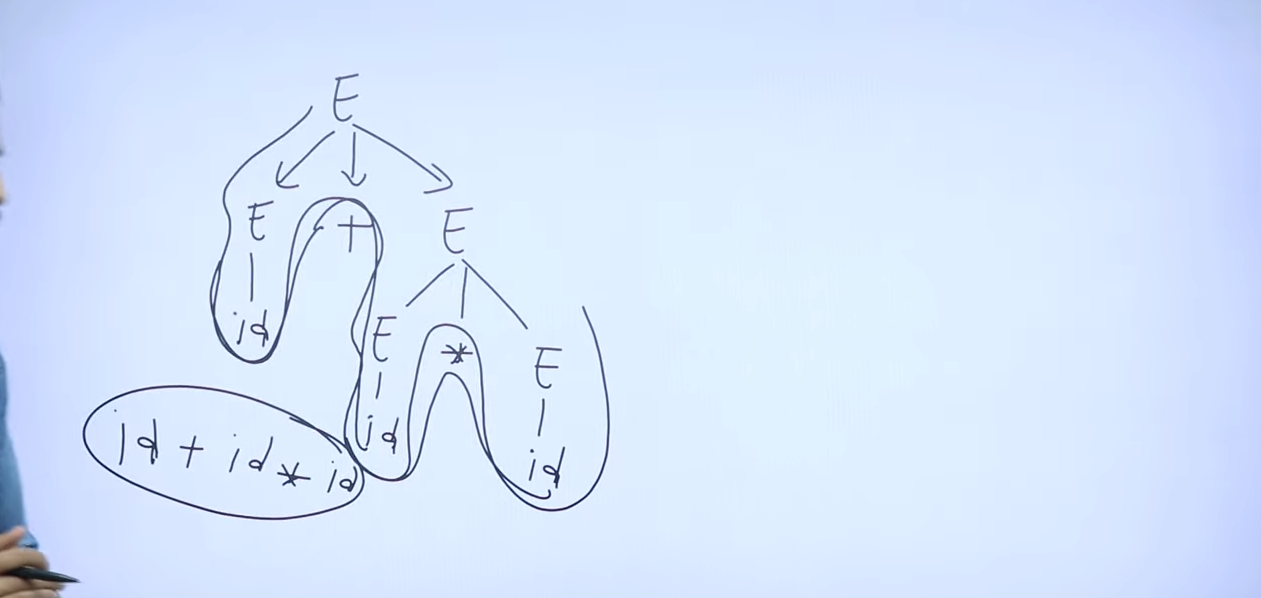 E
E + E
id
E * E
id
id
id + id * id